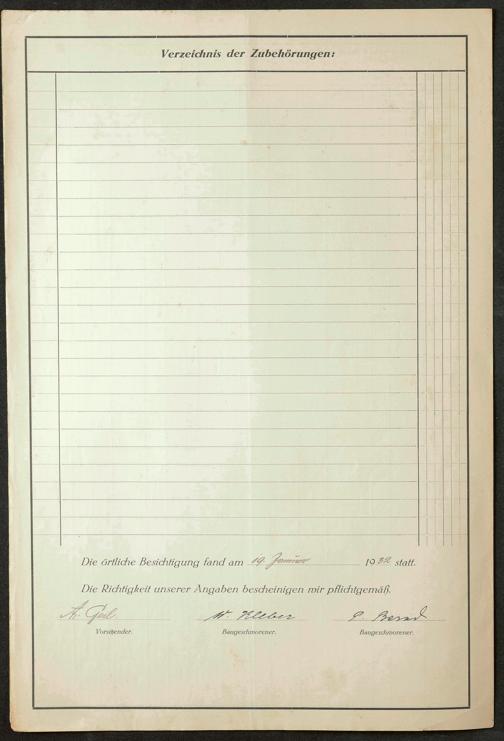 Verzeichnis der Zubehörungen:
Die örtliche Besichtigung fand am 19. Januar 1932 statt.
Die Richtigkeit unserer Angaben bescheinigen wir pflichtgemäß.
W. Kleber
Vorsitzender. Baugeschworener. Baugeschworener.